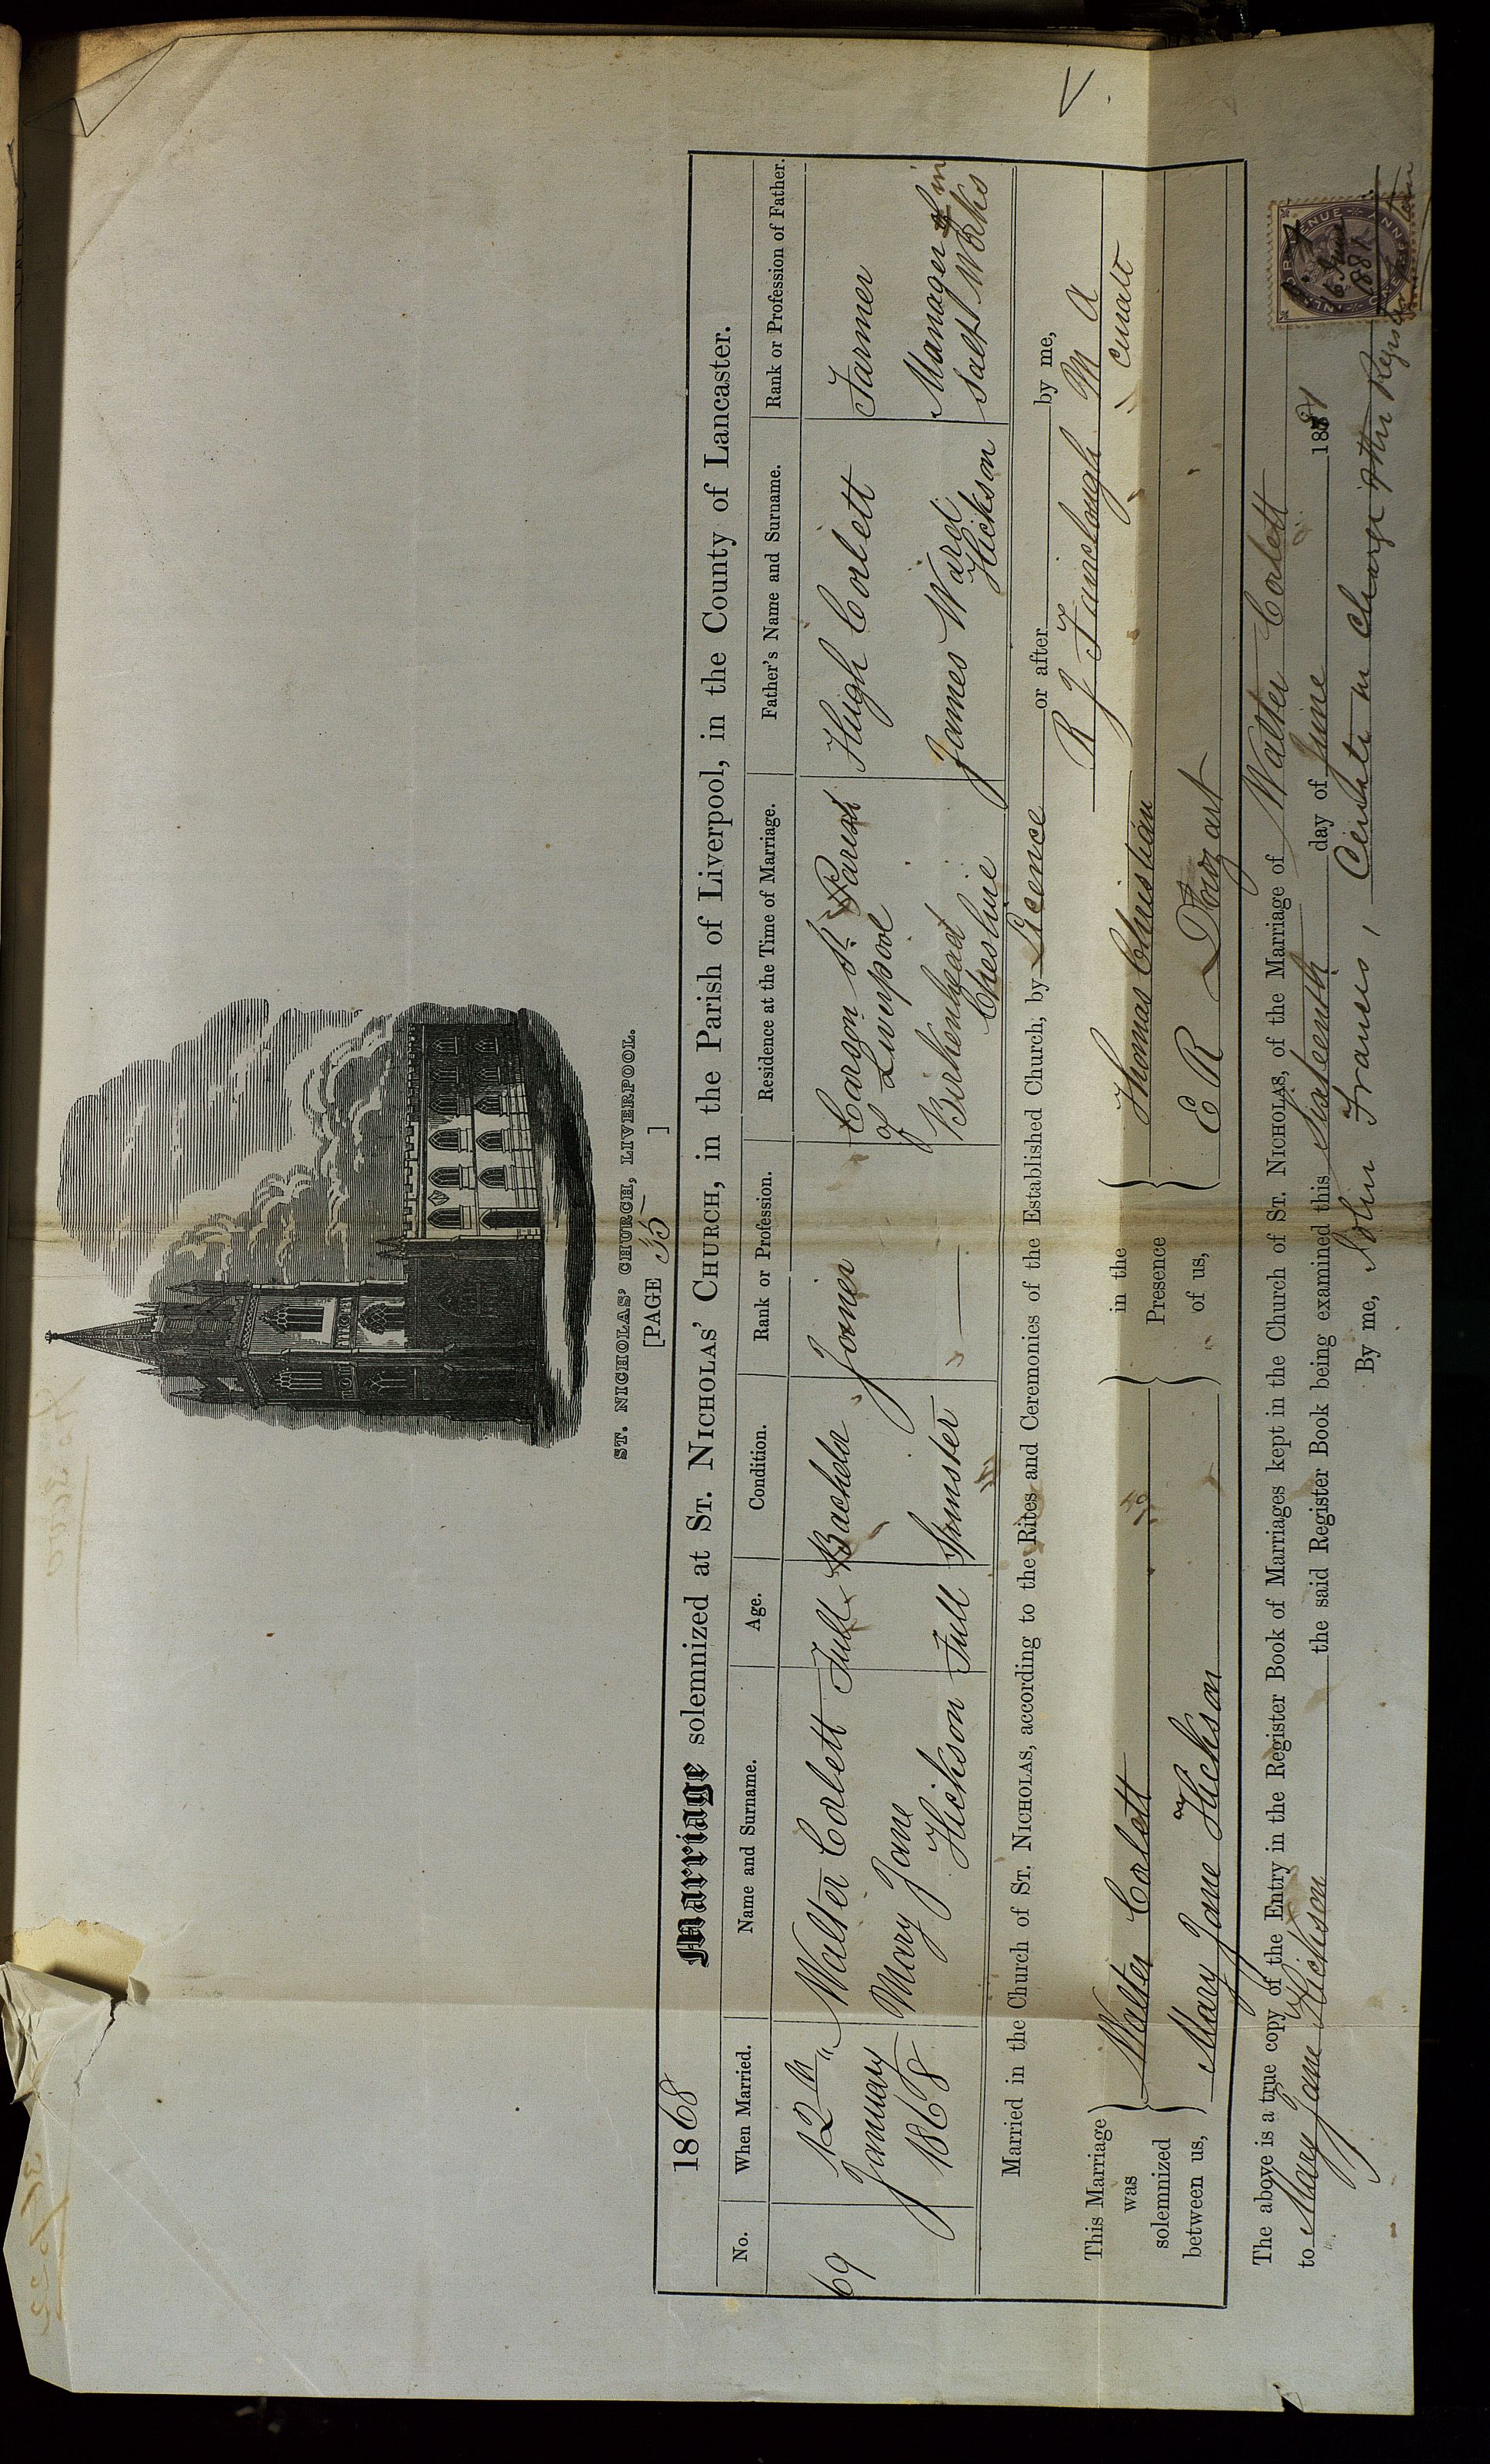 ST. NICHOLAS' CHURCH, LIVERPOOL.
[PAGE 35 ]
1868 Marriage solemnized at ST. NICHOLAS' CHURCH, in the Parish of Liverpool, in the County of Lancaster.
No. When Married. Name and Surname. Age. Condition. Rank or Profession. Residence at the Time of Marriage. Father's Name and Surname. Rank or Profession of Father.
69 12th Walter Corlett Full Bachelor Joiner Carson St. Parish Hugh Corlett Farmer
January Mary Jane of Liverpool
1868 Hickson Full Spinster — Birkenhead James Ward Manager of in
Cheshire Hickson Salt Works
Married in the Church of ST. NICHOLAS, according to the Rites and Ceremonies of the Established Church, by Licence or after by me,
R J Fairclough M A
Curate
This Marriage
was
solemnized
between us,
Walter Corlett
Mary Jane Hickson
in the
Presence
of us,
Thomas Christian
E R
The above is a true copy of the Entry in the Register Book of Marriages kept in the Church of ST. NICHOLAS, of the Marriage of Walter Corlett
to Mary Jane Hickson the said Register Book being examined this Sixteenth day of June 1881
By me, John Frances, Curate in charge of the Register
INLAND REVENUE
ONE PENNY
16 June
1881